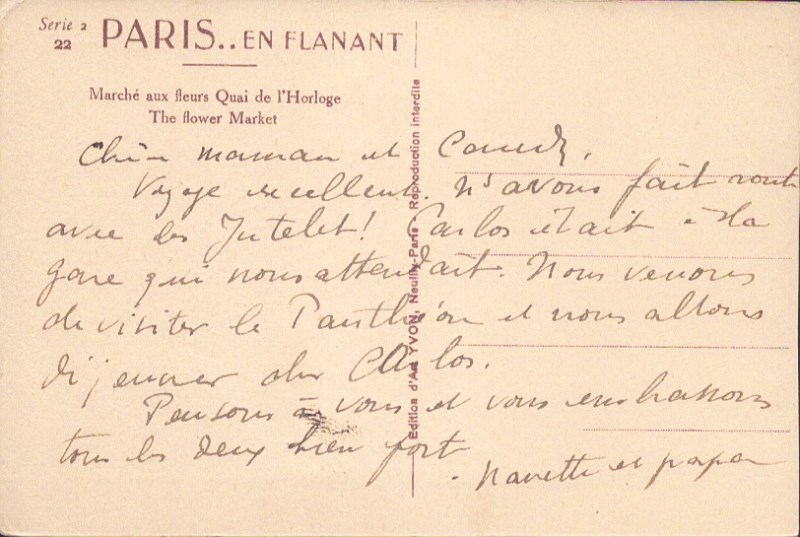 Serie 2
22
PARIS.. EN FLANANT
Marché aux fleurs Quai de l'Horloge
The flower Market
Chère maman et
Voyage excellent. Ns avons fait route
avec les ! Carlos était à la
gare qui nous attendait. Nous venons
de visiter le Panthéon et nous allons
déjeuner chez Carlos.
Pensons à vous et vous embrassons
tous les deux bien fort
et papa
Edition d'Art YVON, Neuilly-Paris - Reproduction interdite